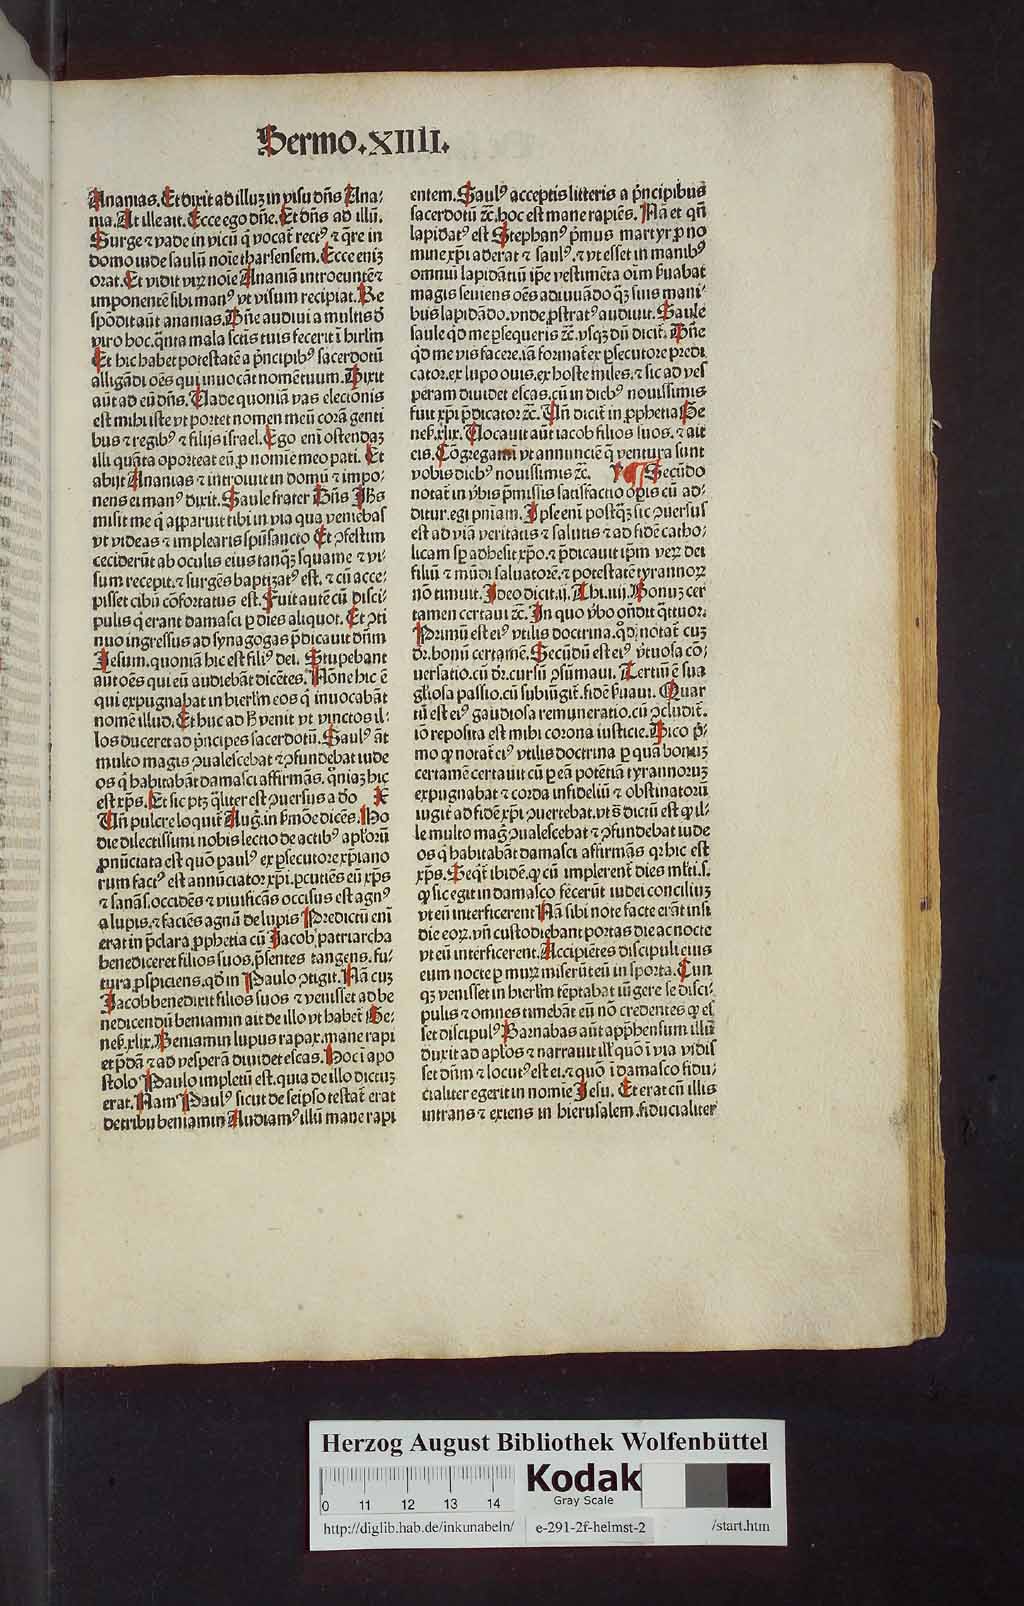 Sermo.XIIII.
Ananias. Et dixit ad illuꝫ in visu dñs Ana⸗
nia. At ille ait. Ecce ego dñe. Et dñs ad illũ.
Surge ⁊ vade in vicũ q̃ vocat̃ rectꝰ ⁊ q̃re in
domo iude saulũ noĩe tharsensem. Ecce eniꝫ
orat. Et vidit virꝫ noĩe Ananiã introeuntẽ ⁊
imponentẽ sibi manꝰ vt visum recipiat. Re
spõdit aũt ananias. Dñe audiui a multis d̃
viro hoc. q̃nta mala scũs tuis fecerit ĩ hirlm̃
Et hic habet potestatẽ a p̃ncipibꝰ sacerdotũ
alligãdi oẽs qui inuocãt nomẽ tuum. Dixit
aũt ad eũ dñs. Uade quoniã vas elecionis
est mihi iste vt portet nomen meũ corã genti
bus ⁊ regibꝰ ⁊ filijs israel. Ego enĩ ostendaꝫ
illi quãta oporteat eũ ꝓ nomĩe meo pati. Et
abijt Ananias ⁊ introiuit in domũ ⁊ impo⸗
nens ei manꝰ dixit. Saule frater Dñs Jhs
misit me q̃ apparuit tibi in via qua veniebas
vt videas ⁊ implearis spũ sancto Et ꝯfestim
ceciderũt ab oculis eius tanqꝫ squame ⁊ vi⸗
sum recepit. ⁊ surgẽs baptizatꝰ est. ⁊ cũ acce⸗
pisset cibũ cõfortatus est. Fuit autẽ cũ disci⸗
pulis q̃ erant damasci ꝑ dies aliquot. Et ꝯti
nuo ingressus ad synagogas p̃dicauit dñm
Jesum. quoniã hic est filiꝰ dei. Stupebant
aũt oẽs qui eũ audiebãt dicẽtes. Nõne hic ẽ
qui expugnabat in hierlm̃ eos q̃ inuocabãt
nomẽ illud. Et huc ad h̃ venit vt vinctos il⸗
los duceret ad p̃ncipes sacerdotũ. Saulꝰ ãt
multo magis ꝯualescebat ⁊ ꝯfundebat iude
os q̃ habitabãt damasci affirmãs. q̃niaꝫ hic
est xp̃s. Et sic ptꝫ q̃liter est ꝯuersus a do
Uñ pulcre loquit̃ Aug̃. in s̃mõe dicẽs. Ho
die dilectissimi nobis lectio de actibꝰ apl̃orũ
ꝓnũciata est quõ paulꝰ ex ꝑsecutore xp̃iano
rum factꝰ est annũciator xp̃i. ꝑcutiẽs eũ xp̃s
⁊ sanãs. occidẽs ⁊ viuificãs occisus est agnꝰ
a lupis. ⁊ faciẽs agnũ de lupis Predictũ enĩ
erat in p̃clara ꝓphetia cũ Jacob patriarcha
benediceret filios suos. p̃sentes tangens. fu⸗
tura ꝓspiciens. qd̃ in Paulo ꝯtigit. Nã cuꝫ
Jacob benedixit filios suos ⁊ venisset ad be
nedicendũ beniamin ait de illo vt habet̃ Ge⸗
neß. xlix. Beniamin lupus rapax. mane rapi
et p̃dã ⁊ ad vesperã diuidet escas. Hoc ĩ apo
stolo Paulo impletũ est. quia de illo dictuꝫ
erat. Nam Paulꝰ sicut de seipso testat̃ erat
de tribu beniamin Audiamꝰ illũ mane rapi
entem. Saulꝰ acceptis litteris a p̃ncipibus
sacerdotũ ⁊c̃. hoc est mane rapiẽs. Nã et qñ
lapidatꝰ est Stephanꝰ p̃mus martyr ꝓ no
mine xp̃i aderat ⁊ saulꝰ. ⁊ vt esset in manibꝰ
omniũ lapidãtiũ ip̃e vestimẽta oĩm s̃uabat
magis seuiens oẽs adiuuãdo qꝫ suis mani⸗
bus lapidãdo. vnde ꝓstratꝰ audiuit. Saule
saule qd̃ me ꝑsequeris ⁊c̃. vsqꝫ dũ dicit̃. Dñe
qd̃ me vis facere. iã format̃ ex ꝑsecutore predi
cator. ex lupo ouis. ex hoste miles. ⁊ sic ad ves
peram diuidet escas. cũ in diebꝰ nouissimis
fuit xp̃i p̃dicator ⁊c̃. Uñ dicit̃ in ꝓphetia Ge
neß. xlix. Uocauit aũt iacob filios suos. ⁊ ait
eis. Cõgregamĩ vt annunciẽ q̃ ventura sunt
vobis diebꝰ nouissimis ⁊c̃. Secũdo
notat̃ in v̾bis p̃missis satisfactio oꝑis cũ ad⸗
ditur. egi pñiam. Ipse enĩ postqꝫ sic ꝯuersus
est ad viã veritatis ⁊ salutis ⁊ ad fidẽ catho⸗
licam sp̃ adhesit xp̃o. ⁊ p̃dicauit ip̃m verꝫ dei
filiũ ⁊ mũdi saluatorẽ. ⁊ potestatẽ tyrannoꝝ
nõ timuit. Ideo dicit. ij. Thi. iiij. Bonuꝫ cer
tamen certaui ⁊c̃. In quo v̾bo oñdit q̃ttuor.
Primũ est eiꝰ vtilis doctrina. qd̃ notat̃ cuꝫ
dr̃. bonũ certamẽ. Secũdũ est eiꝰ v̾tuosa cõ⸗
uersatio. cũ dr̃. cursũ ꝯsũmaui. Tertiũ ẽ sua
gl̃iosa passio. cũ subiũgit̃. fidẽ s̃uaui. Quar
tũ est eiꝰ gaudiosa remuneratio. cũ ꝯcludit̃.
iõ reposita est mihi corona iusticie. Dico p̃⸗
mo ꝙ notat̃ eiꝰ vtilis doctrina ꝑ quã bonuꝫ
certamẽ certauit cũ ꝑ eã potẽtiã tyrannoruꝫ
expugnabat ⁊ corda infideliũ ⁊ obstinatorũ
iugit̃ ad fidẽ xp̃i ꝯuertebat. vt s̃ dictũ est ꝙ il⸗
le multo mag̃ ꝯualescebat ⁊ ꝯfundebat iude
os q̃ habitabãt damasci affirmãs qꝛ hic est
xp̃s. Seqt̃ ibidẽ. ꝙ cũ implerent̃ dies ml̃ti. s.
ꝙ sic egit in damasco fecerũt iudei conciliuꝫ
vt eũ interficerent Nã sibi note facte erãt insi
die eoꝝ. vñ custodiebant portas die ac nocte
vt eũ interficerent. Accipiẽtes discipuli eius
eum nocte ꝑ murꝫ miserũt eũ in sporta. Cun
qꝫ venisset in hierlm̃ tẽptabat iũgere se disci⸗
pulis ⁊ omnes timebãt eũ nõ credentes ꝙ es
set discipulꝰ Barnabas aũt app̃hensum illũ
duxit ad apl̃os ⁊ narrauit ill̃ quõ ĩ via vidis
set dñm ⁊ locutꝰ est ei. ⁊ quõ ĩ damasco fidu⸗
cialiter egerit in nomĩe Jesu. Et erat cũ illis
intrans ⁊ exiens in hierusalem. fiducialiter
Herzog August Bibliothek Wolfenbüttel
0 11 12 13 14
Kodak
Gray Scale
http://diglib.hab.de/inkunabeln/ e-291-2f-helmst-2 /start.htm